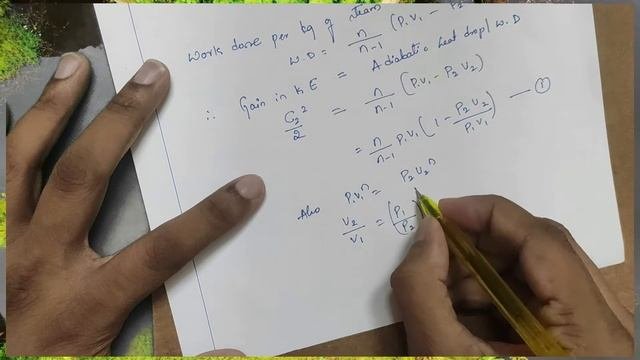 Work done per kg of steam
W.D = n/n-1 (P₁V₁ - P₂
∴ Gain in K E = Adiabatic heat drop / W.D
C₂²/2 = n/n-1 (P₁V₁ - P₂V₂)
= n/n-1 P₁V₁ (1 - P₂V₂/P₁V₁) — ①
Also P₁V₁ⁿ = P₂V₂ⁿ
V₂/V₁ = (P₁/P₂